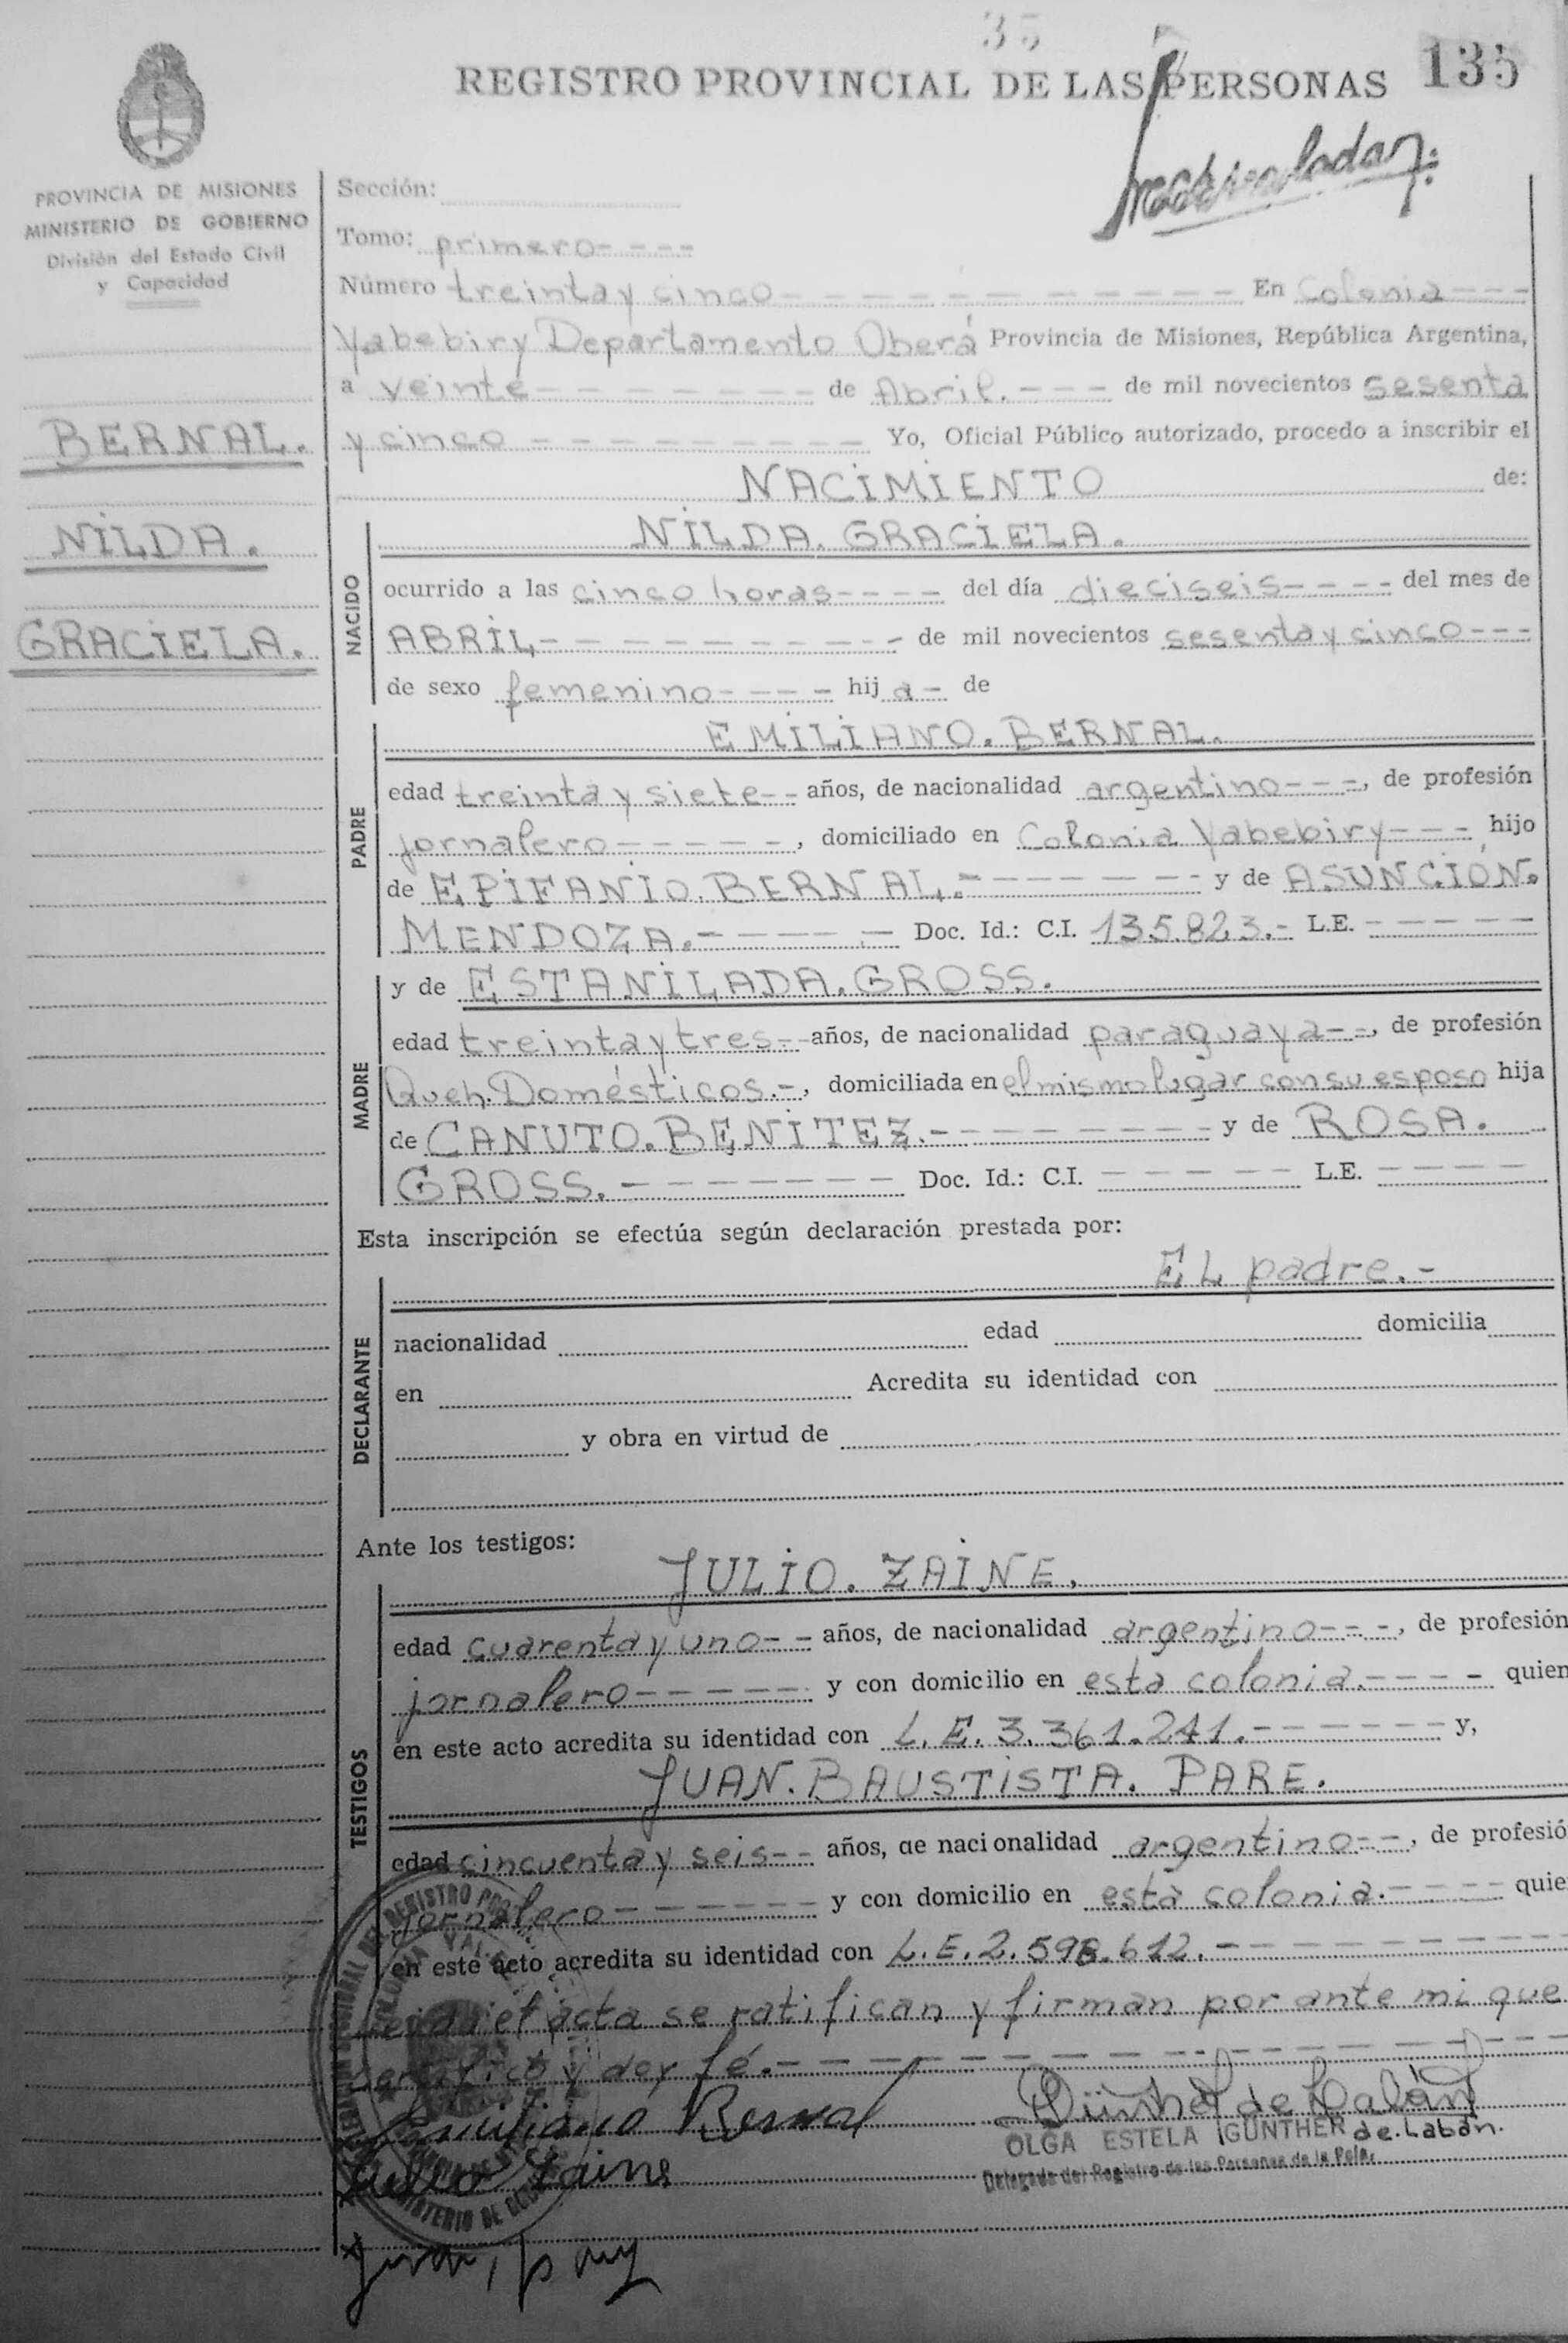 35
REGISTRO PROVINCIAL DE LAS PERSONAS 135
PROVINCIA DE MISIONES
MINISTERIO DE GOBIERNO
División del Estado Civil
y Capacidad
BERNAL.
NILDA.
GRACIELA.
Sección:
Tomo: primero----
Número treinta y cinco---------- En Colonia---
Yabebiry Departamento Oberá Provincia de Misiones, República Argentina,
a veinte-------- de Abril.--- de mil novecientos sesenta
y cinco--------- Yo, Oficial Público autorizado, procedo a inscribir el
NACIMIENTO de:
NACIDO
NILDA. GRACIELA.
ocurrido a las cinco horas---- del día dieciseis---- del mes de
ABRIL---------- de mil novecientos sesenta y cinco---
de sexo femenino---- hij a- de
PADRE
EMILIANO. BERNAL.
edad treinta y siete-- años, de nacionalidad argentino---, de profesión
jornalero-----, domiciliado en Colonia Yabebiry--- hijo
de EPIFANIO. BERNAL.------- y de ASUNCIÓN.
MENDOZA.----- Doc. Id.: C.I. 135.823.- L.E. -----
MADRE
y de ESTANILADA. GROSS.
edad treinta y tres.-- años, de nacionalidad paraguaya--, de profesión
Queh. Domésticos.-, domiciliada en el mismo lugar con su esposo hija
de CANUTO. BENITEZ.--------- y de ROSA.
GROSS.------- Doc. Id.: C.I. ------ L.E. ----
Esta inscripción se efectúa según declaración prestada por:
DECLARANTE
EL padre.-
nacionalidad edad domicilia
en Acredita su identidad con
y obra en virtud de
Ante los testigos:
TESTIGOS
JULIO. ZAINE.
edad cuarenta y uno-- años, de nacionalidad argentino---, de profesión
jornalero------ y con domicilio en esta colonia.---- quien
en este acto acredita su identidad con L.E. 3.361.241.------- y,
JUAN. BAUSTISTA. PARE.
edad cincuenta y seis-- años, de nacionalidad argentino--, de profesió
jornalero------- y con domicilio en esta colonia.---- quie
en este acto acredita su identidad con L.E. 2.598.612.----------
el acta se ratifican y firman por ante mi que
y doy fé.-------------
Emiliano Bernal Günther de Labán
OLGA ESTELA GÜNTHER de Labán.
Julio Zaine Delegada del Registro de las Personas de la Pcia.